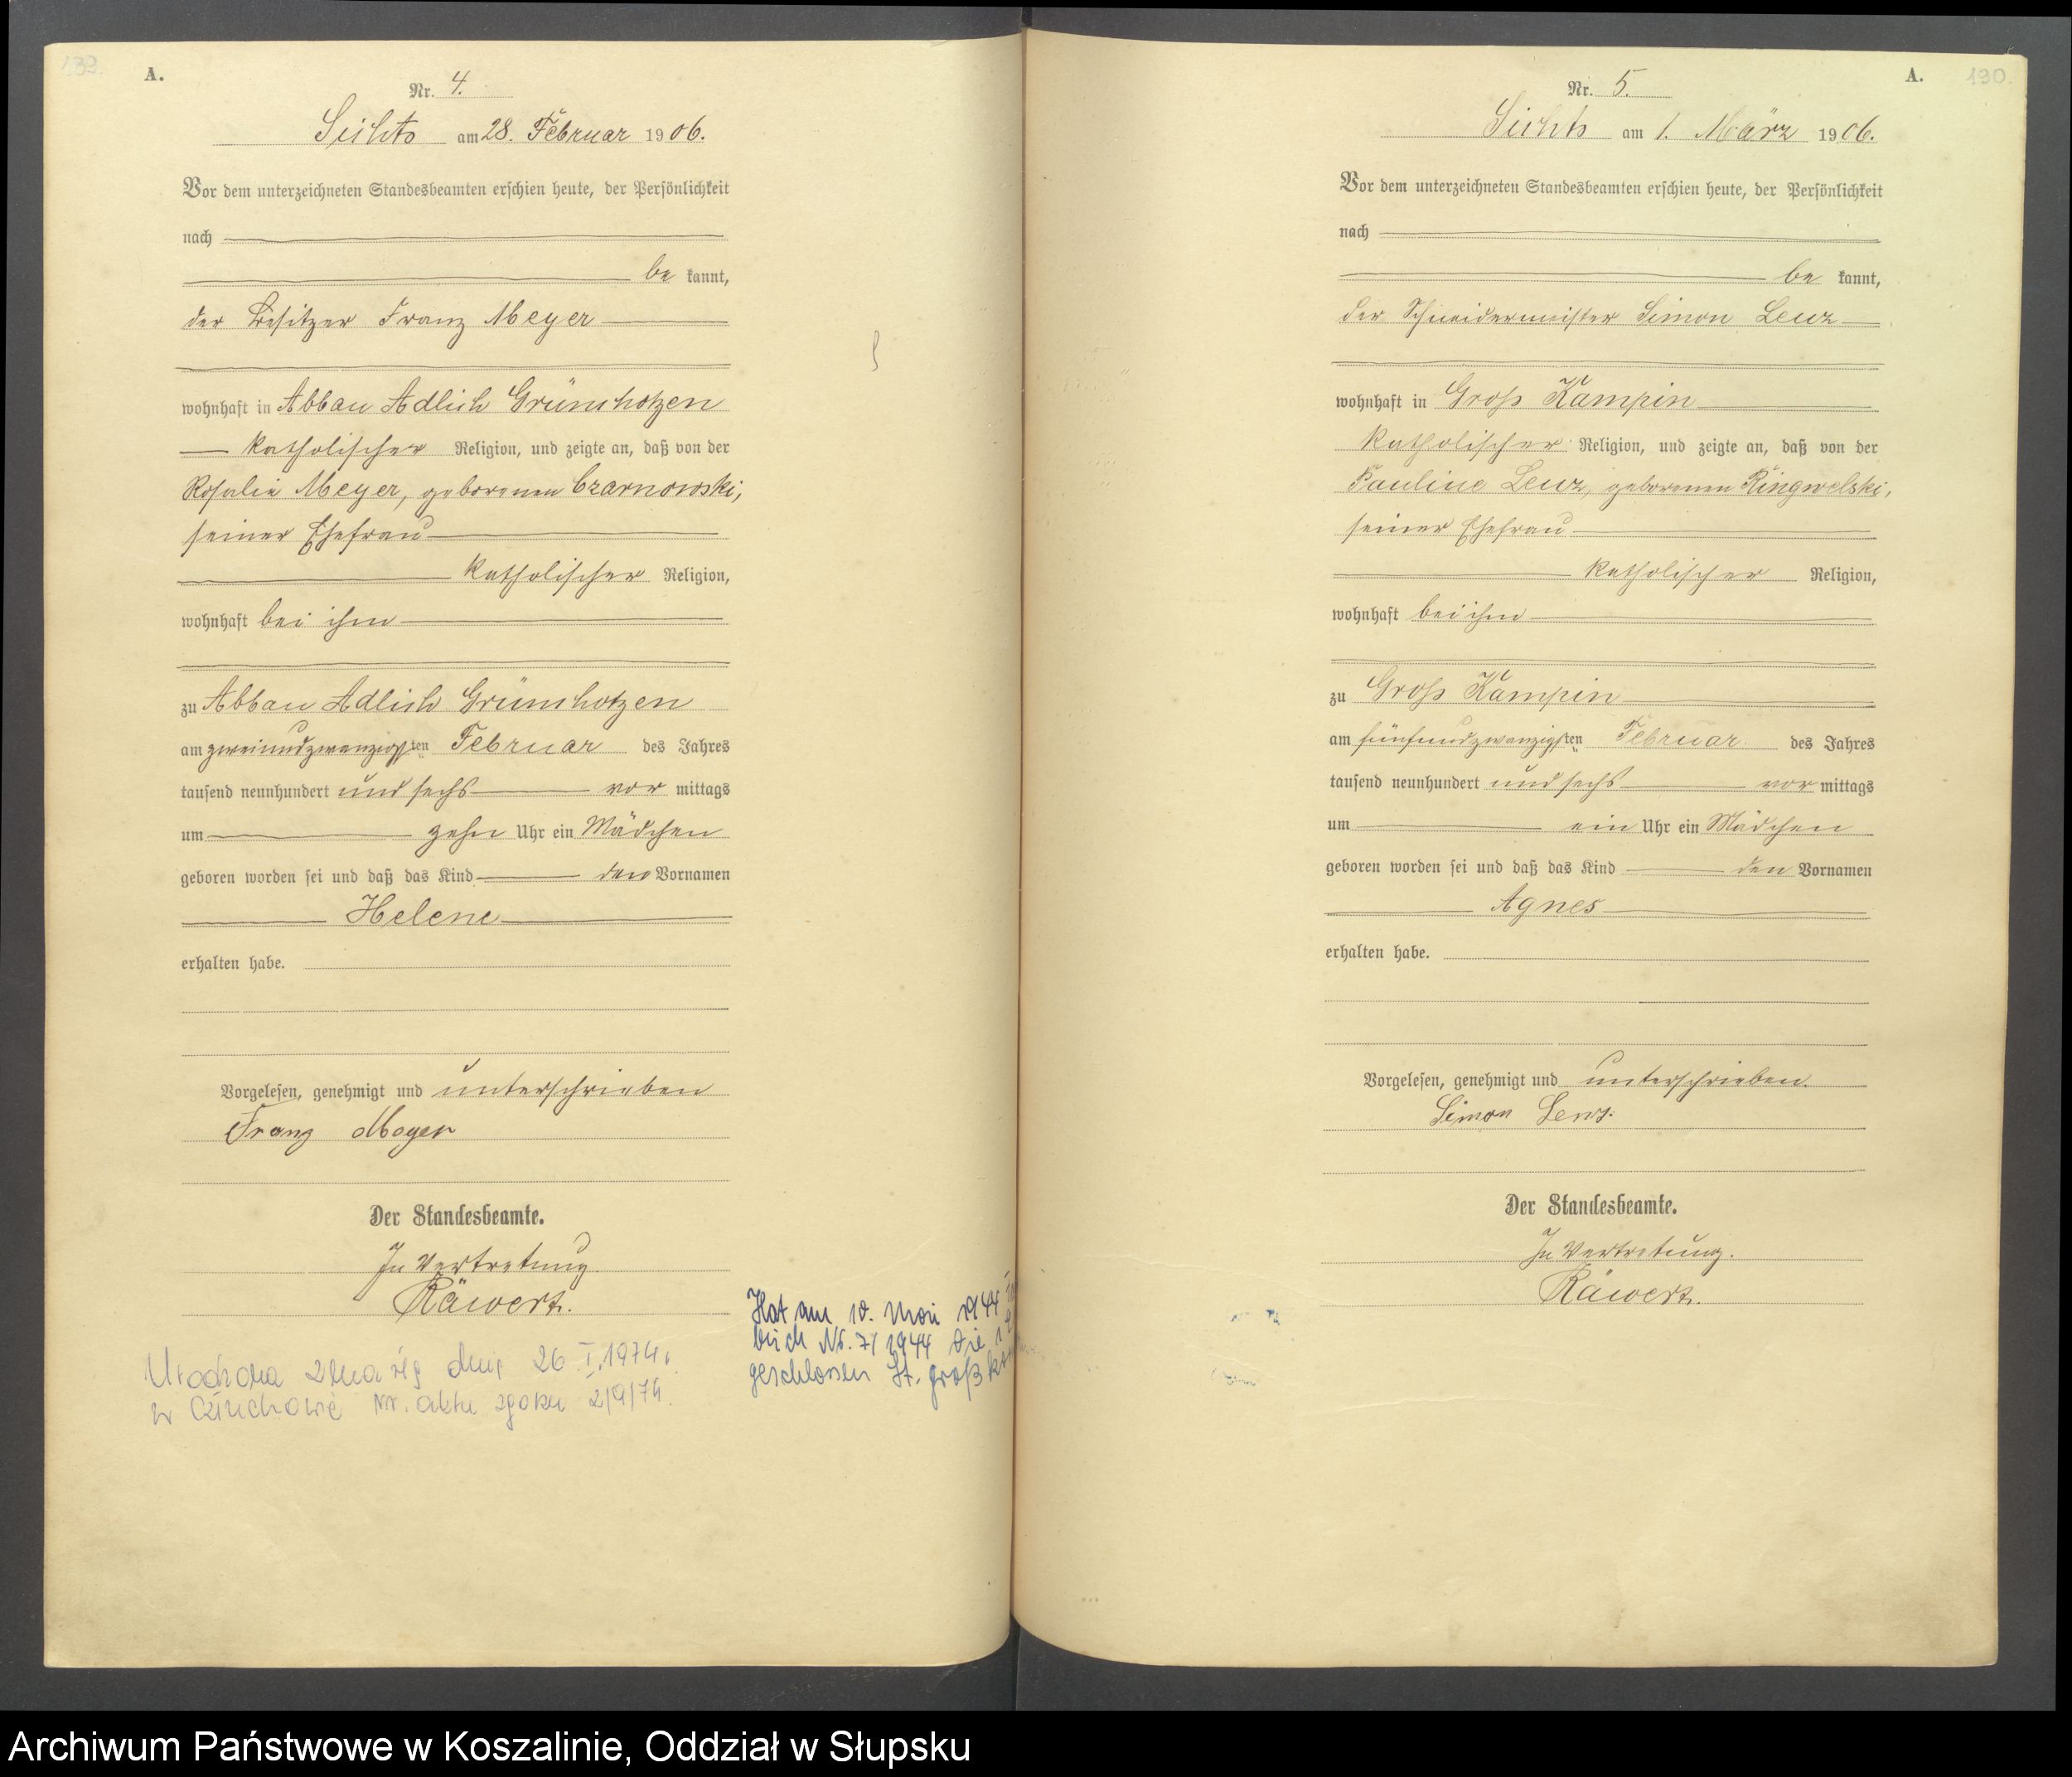 139.
A.
Nr. 4.
am 28. Februar 1906.
Vor dem unterzeichneten Standesbeamten erschien heute, der Persönlichkeit
nach
be kannt,
der Besitzer Franz Meyer
wohnhaft in Abbau Adlich Grünchotzen
katholischer Religion, und zeigte an, daß von der
Rosalie Meyer, geborenen Czarnowski,
seiner Ehefrau
katholischer Religion,
wohnhaft bei ihm
zu Abbau Adlich Grünchotzen
am zweiundzwanzigsten Februar des Jahres
tausend neunhundert und sechs vor mittags
um zehn Uhr ein Mädchen
geboren worden sei und daß das Kind den Vornamen
Helene
erhalten habe.
Vorgelesen, genehmigt und unterschrieben
Franz Meyer
Der Standesbeamte.
In Vertretung
Räwert.
Hat am 10. Mai 1944
buch Nr. 7/1944 die
geschlossen St. Groß
Urodzona zmarła dnia 26.I.1974r.
w Człuchowie Nr. aktu zgonu
A.
190.
Nr. 5.
am 1. März 1906.
Vor dem unterzeichneten Standesbeamten erschien heute, der Persönlichkeit
nach
be kannt,
der Schneidermeister Simon Lenz
wohnhaft in Groß Kampin
katholischer Religion, und zeigte an, daß von der
Pauline Lenz, geborenen Ringwelski,
seiner Ehefrau
katholischer Religion,
wohnhaft bei ihm
zu Groß Kampin
am fünfundzwanzigsten Februar des Jahres
tausend neunhundert und sechs vor mittags
um ein Uhr ein Mädchen
geboren worden sei und daß das Kind den Vornamen
Agnes
erhalten habe.
Vorgelesen, genehmigt und unterschrieben.
Simon Lenz.
Der Standesbeamte.
In Vertretung.
Räwert.
Archiwum Państwowe w Koszalinie, Oddział w Słupsku